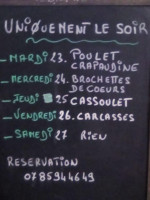 UNIQUEMENT LE SOIR
_ MARDI 23. POULET
CRAPAUDINE
_ MERCREDI 24. BROCHETTES
DE COEURS
_ JEUDI 25 CASSOULET
_ VENDREDI 26. CARCASSES
_ SAMEDI 27 RIEN
RESERVATION
0785944649